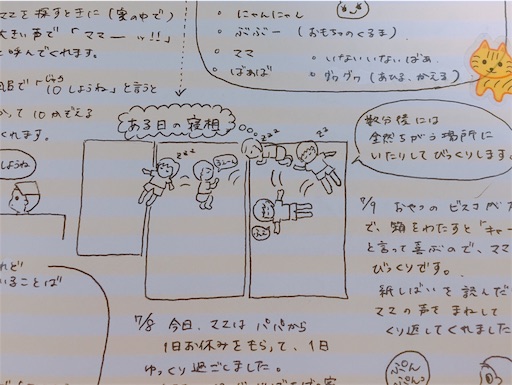 ママを探すときに（家の中で）
大きい声で「ママーーッ!!」
と呼んでくれます。
「10しようね」と言うと
って10かぞえる
くれます。
しようね
・にゃんにゃし
・ぶぶー（おもちゃのくるま）
・ママ
・いないいないばあ
・ばあば
・グワグワ（あひる、かえる）
ある日の寝相
zzz
zzz
zz
数分後には
全然ちがう場所に
いたりしてびっくりします。
7/9 おやつのビスコが
で、箱をわたすと「キャー
と言って喜ぶので、ママ
びっくりです。
紙しばいを読んだ
ママの声をまねして
くり返してくれました
7/8 今日、ママはパパから
1日お休みをもらって、1日
ゆっくり過ごしました。
れど
いることば
ぷん
ぷんっ